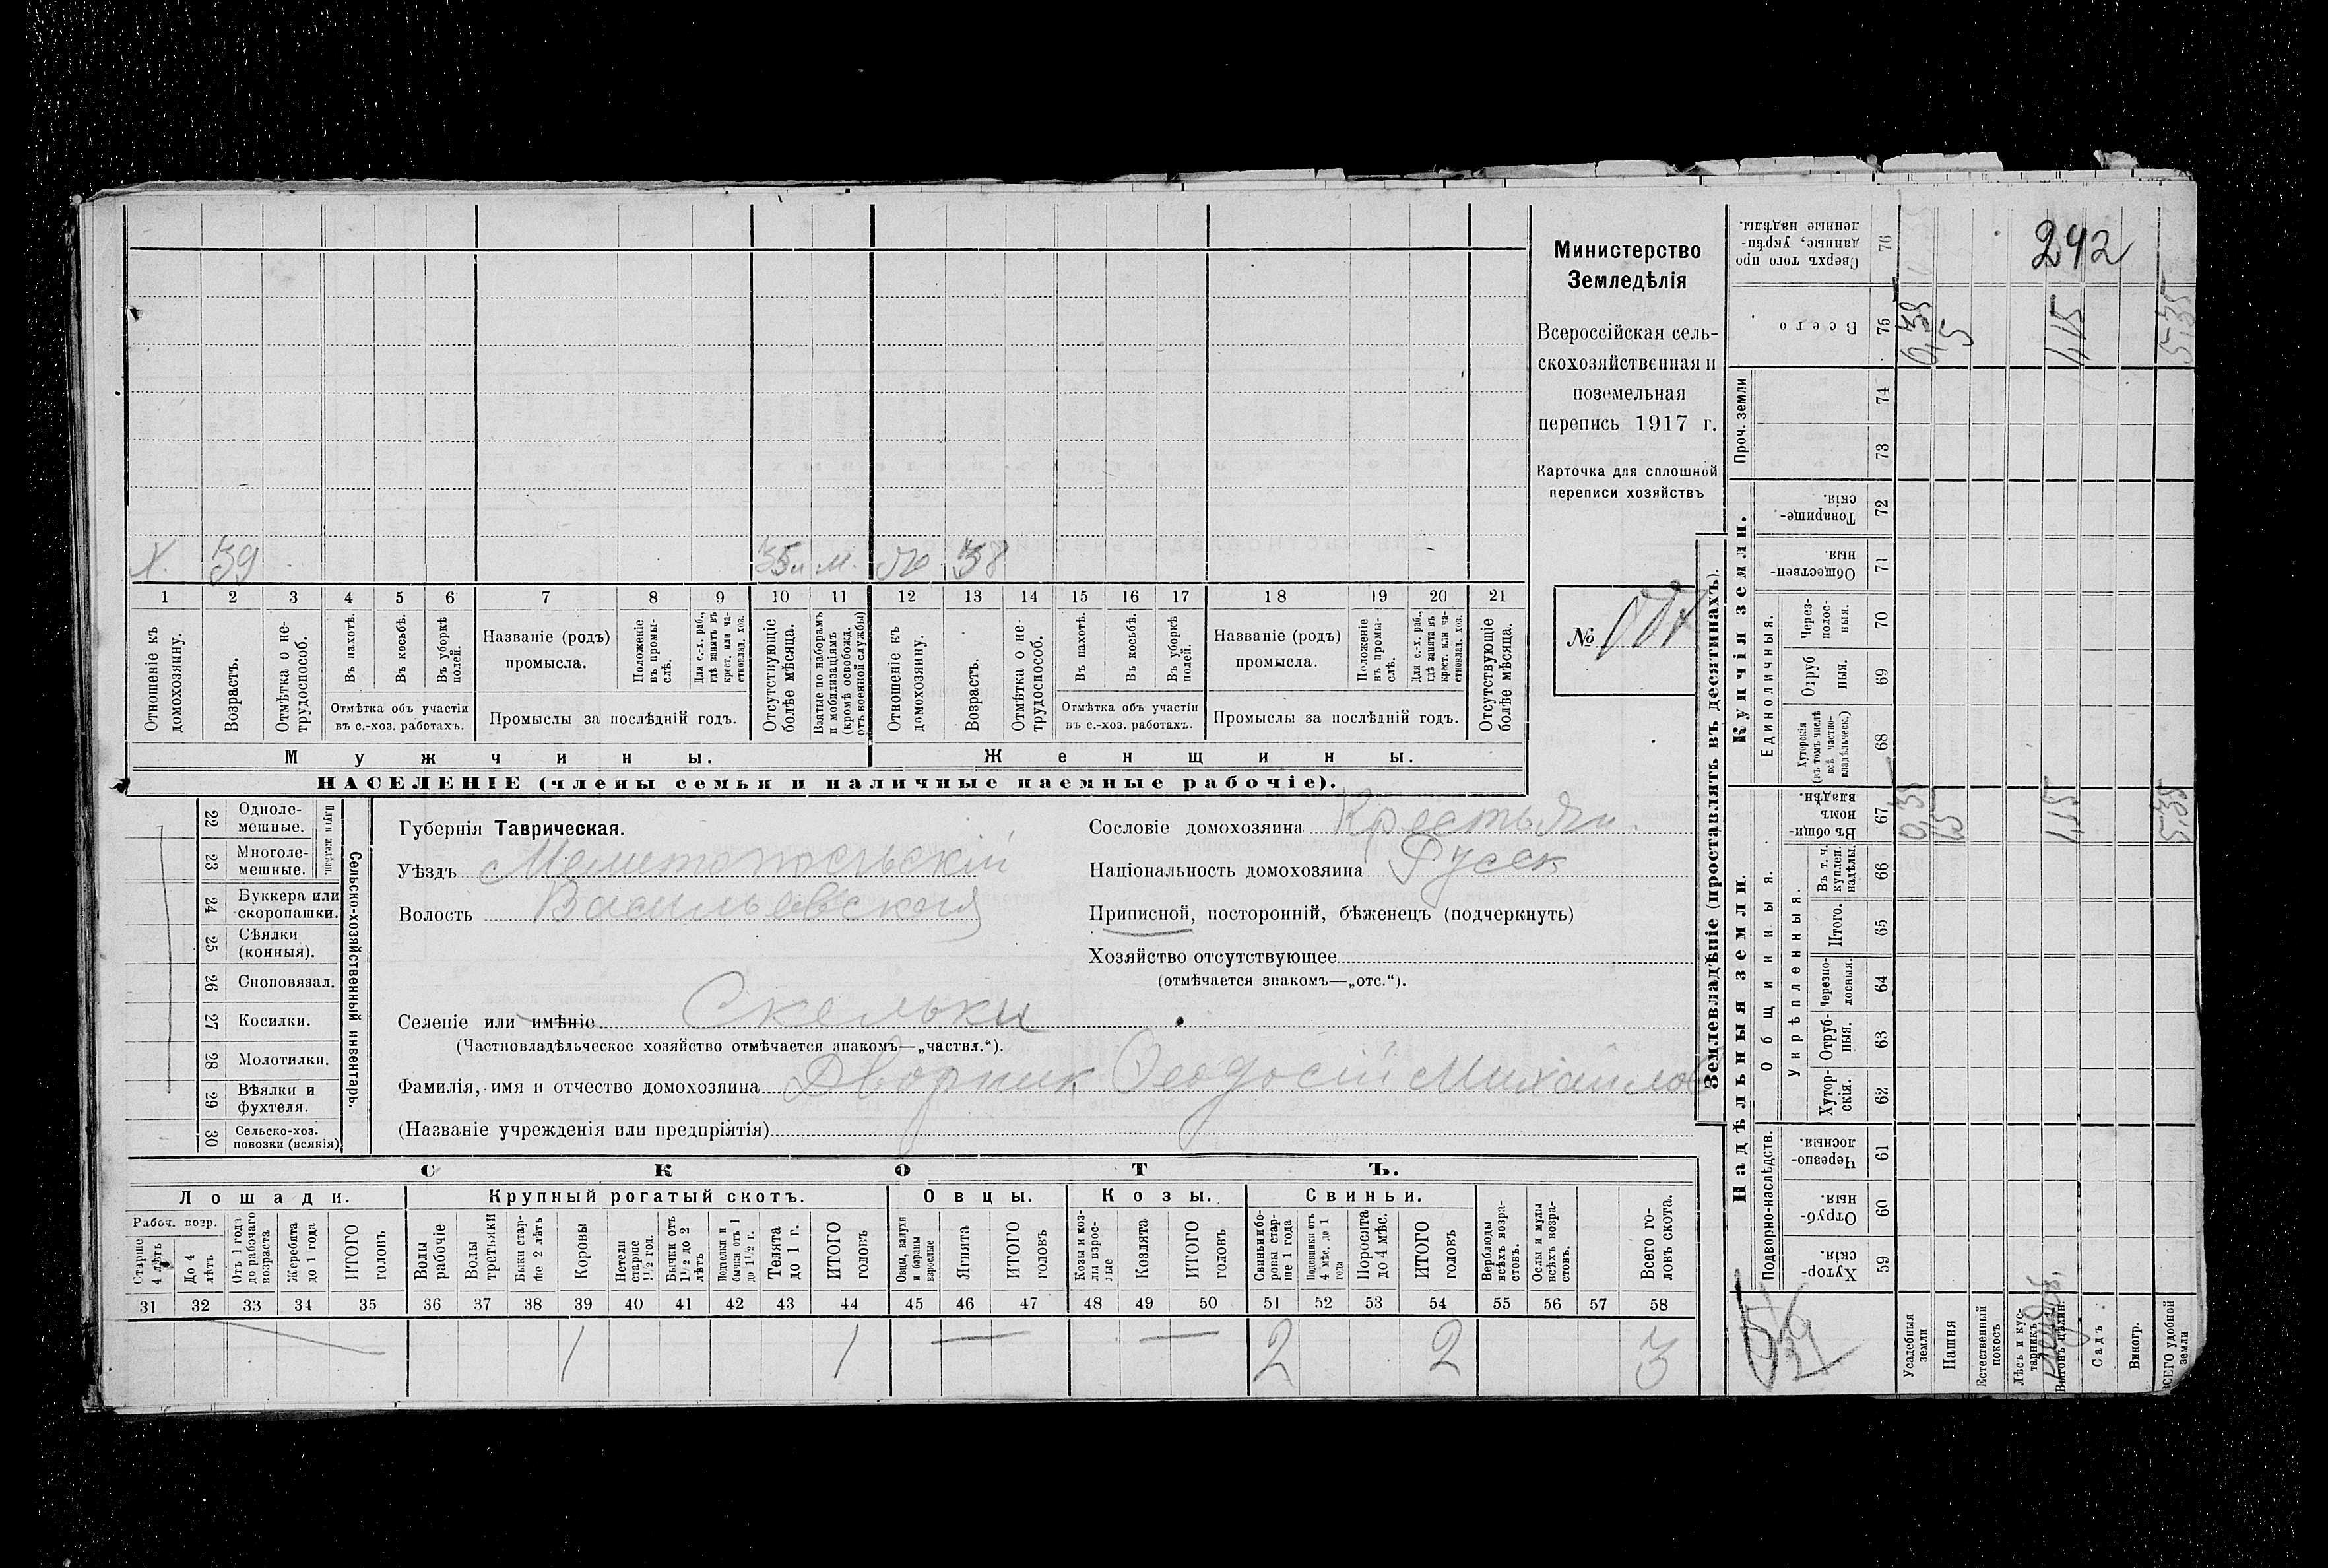 242
Министерство
Земледѣлія
Всероссійская сель-
скохозяйственная и
поземельная
перепись 1917 г.
Карточка для сплошной
переписи хозяйствъ
№
Х. 39 м. 38
1 2 3 4 5 6 7 8 9 10 11 12 13 14 15 16 17 18 19 20 21
Отношеніе къ домохозяину.
Возрастъ.
Отмѣтка о не-трудоспособ.
Въ пахотѣ.
Въ косьбѣ.
Въ уборкѣ полей.
Отмѣтка объ участіи
въ с.-хоз. работахъ.
Названіе (родъ)
промысла.
Положеніе въ промы-слѣ.
Для с.-х. раб., гдѣ занятъ въ крест. или ча-стновлад. хоз.
Промыслы за послѣдній годъ.
Отсутствующіе болѣе мѣсяца.
Взятые по наборамъ и мобилизаціямъ (кромѣ освобожд. отъ военной службы)
Отношеніе къ домохозяину.
Возрастъ.
Отмѣтка о не-трудоспособ.
Въ пахотѣ.
Въ косьбѣ.
Въ уборкѣ полей.
Отмѣтка объ участіи
въ с.-хоз. работахъ.
Названіе (родъ)
промысла.
Положеніе въ промы-слѣ.
Для с.-х. раб., гдѣ занята въ крест. или ча-стновлад. хоз.
Промыслы за послѣдній годъ.
Отсутствующіе болѣе мѣсяца.
Мужчины. Женщины.
НАСЕЛЕНІЕ (члены семьи и наличные наемные рабочіе).
Сельско-хозяйственный инвентарь.
Плуги желѣзн.
22 Одноле-мешные.
23 Многоле-мешные.
24 Буккера или скоропашки.
25 Сѣялки (конныя).
26 Сноповязал.
27 Косилки.
28 Молотилки.
29 Вѣялки и фухтеля.
30 Сельско-хоз. повозки (всякія)
Губернія Таврическая.
Уѣздъ Мелитопольскій
Волость Васильевская
Сословіе домохозяина Крестьян.
Національность домохозяина Русск
Приписной, посторонній, бѣженецъ (подчеркнуть)
Хозяйство отсутствующее
(отмѣчается знакомъ—„отс.“).
Селеніе или имѣніе Скельки
(Частновладѣльческое хозяйство отмѣчается знакомъ—„частвл.“).
Фамилія, имя и отчество домохозяина Дворник Феодосій Михайлов
(Названіе учрежденія или предпріятія)
СКОТЪ.
Лошади. Крупный рогатый скотъ. Овцы. Козы. Свиньи.
Рабоч. возр.
Старше 4 лѣтъ
До 4 лѣтъ
Отъ 1 года до рабочаго возраста
Жеребята до 1 года
ИТОГО головъ
Волы рабочіе
Волы третьяки
Быки стар-ше 2 лѣтъ
Коровы
Нетели старше 1½ год.
Бычки отъ 1½ до 2 лѣтъ
Подтелки и бычки отъ 1 до 1½ г.
Телята до 1 г.
ИТОГО головъ
Овцы, валухи и бараны взрослые
Ягнята
ИТОГО головъ
Козы и коз-лы взрос-лые
Козлята
ИТОГО головъ
Свиньи и бо-ровы стар-ше 1 года
Подсвинки отъ 4 мѣс. до 1 года
Поросята до 4 мѣс.
ИТОГО головъ
Верблюды всѣхъ возра-стовъ.
Ослы и мулы всѣхъ возра-стовъ.
Всего го-ловъ скота.
31 32 33 34 35 36 37 38 39 40 41 42 43 44 45 46 47 48 49 50 51 52 53 54 55 56 57 58
— 1 1 — — 2 2 3
Землевладѣніе (проставлять въ десятинахъ).
Надѣльныя земли. Купчія земли.
Проч. земли
Подворно-наслѣдств.
Общинныя.
Укрѣпленныя.
Единоличныя.
Хутор-скія. 59
Отруб-ныя. 60
Черезпо-лосныя. 61
Хутор-скія. 62
Отруб-ныя. 63
Черезпо-лосныя. 64
Итого. 65
Въ т. ч. куплен. надѣлы. 66
Въ общин-номъ владѣн. 67
Хуторскія (въ томъ числѣ всѣ частно-владѣльческ.) 68
Отруб ныя. 69
Через-полос-ныя. 70
Обществен-ныя. 71
Товарище-скія. 72
73
74
Всего 75
Сверхъ того про-данные, укрѣп-ленные надѣлы. 76
Усадебныя земли 0,35 0,35
Пашня 5
Естественный покосъ
Лѣсъ и кус-тарникъ
Выгонъ цѣлин. 1,15 1,15
Садъ
Виногр.
ВСЕГО удобной земли 5,35 5,35